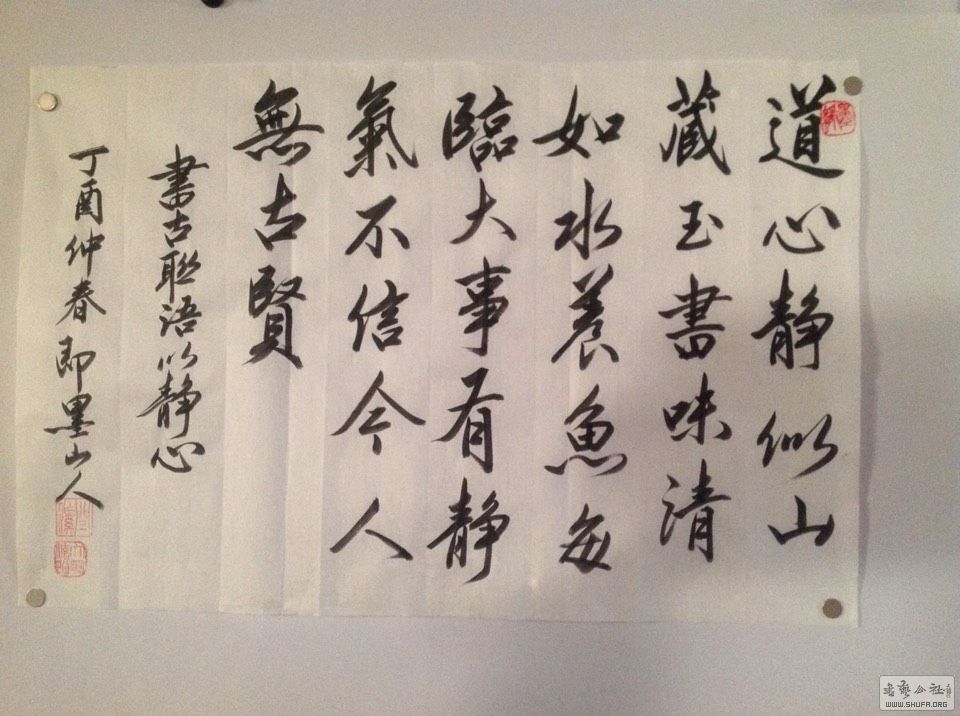 道心静似山
藏玉書味清
如水養魚每
臨大事有静
氣不信今人
無古賢
書古聯语以静心
丁酉仲春即墨山人
書藝公社
WWW.SHUFA.ORG